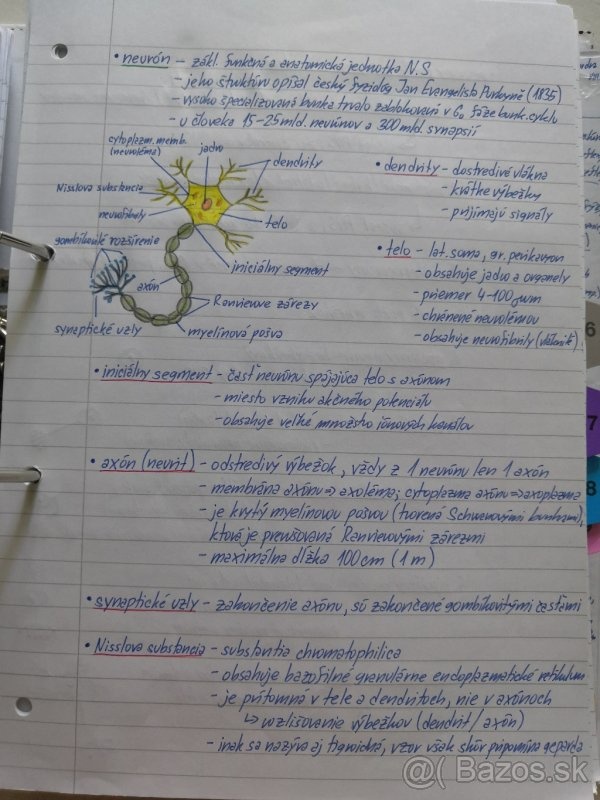 • neurón – zákl. funkčná a anatomická jednotka N.S
– jeho štruktúru opísal český fyziológ Jan Evangelista Purkyně (1835)
– vysoko špecializovaná bunka trvalo zablokovaná v G₀ fáze bunk. cyklu
– u človeka 15–25 mld. neurónov a 300 mld. synapsií
cytoplazm. memb.
(neuroléma)
jadro
dendrity
Nisslova substancia
neurofibrily
telo
gombíkovité rozšírenie
iniciálny segment
axón
Ranvierove zárezy
synaptické uzly
myelínová pošva
• dendrity – dostredivé vlákna
– krátke výbežky
– prijímajú signály
• telo – lat. soma, gr. perikaryon
– obsahuje jadro a organely
– priemer 4–100 μm
– chránené neurolémou
– obsahuje neurofibrily (vláknité)
• iniciálny segment – časť neurónu spájajúca telo s axónom
– miesto vzniku akčného potenciálu
– obsahuje veľké množstvo iónových kanálov
• axón (neurit) – odstredivý výbežok, vždy z 1 neurónu len 1 axón
– membrána axónu => axoléma; cytoplazma axónu => axoplazma
– je krytý myelínovou pošvou (tvorená Schwannovými bunkami),
ktorá je prerušovaná Ranvierovými zárezmi
– maximálna dĺžka 100 cm (1 m)
• synaptické uzly – zakončenie axónu, sú zakončené gombíkovitými časťami
• Nisslova substancia – substantia chromatophilica
– obsahuje bazofilné granulárne endoplazmatické retikulum
– je prítomná v tele a dendritoch, nie v axónoch
↳ rozlišovanie výbežkov (dendrit / axón)
– inak sa nazýva aj tigroidná, vzor však skôr pripomína geparda
6
7
8
@( Bazos.sk